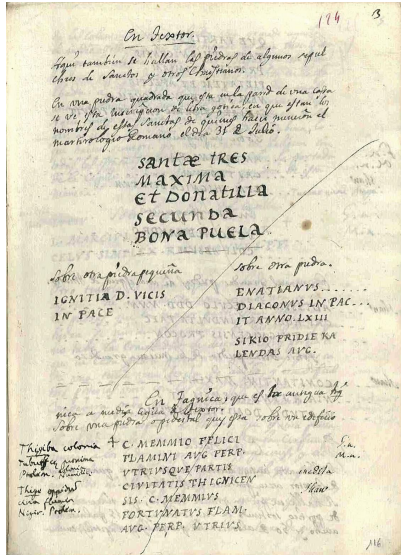 124 3
En Textor.
Aqui tambien se hallan las piedras de algunos sepul
chros de Sanctos y otros Christianos.
En una piedra quadrada que esta en la pared de una casa
se ve esta inscripcion de letra gotica, en que estan los
nombres de estas Sanctas de quienes hace mencion el
martirologio Romano el dia 31 de Julio.
SANTÆ TRES
MAXIMA
ET DONATILLA
SECUNDA
BONA PUELA.
Sobre otra piedra pequeña
IGNITIA D. VICIS
IN PACE
Sobre otra piedra.
ENATIANVS.......
DIACONVS IN PAC...
IT ANNO LXIII
SIKIO PRIDIE KA
LENDAS AVG.
En
Sobre una piedra o pedestal que esta sobre un edificio
Thigiba colonia
+ C. MEMMIO FELICI
FLAMINI AVG PERP.
VTRIVSQUE PARTIS
CIVITATIS THIGNICEN
SIS. C. MEMMIVS
FORTVNATVS FLAM.
AVG. PERP. VTRIVS
inedita
116